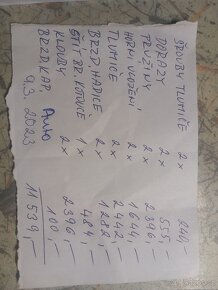 ŠROUBY TLUMIČE 2x 240,-
DORAZY 2x 555,-
PRUŽINY 2x 2396,-
HORNÍ ULOŽENÍ 2x 1644,-
TLUMIČE 2x 2442,-
BRZD HADICE 2x 1282,-
ŠTÍT BR. KOTOUČE 1x 484,-
KLOUBY 2x 2396,-
BRZD KAP. Auto 100,-
9.3. 2023 11539,-